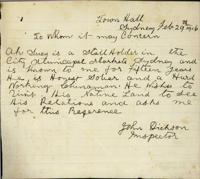 Town Hall
Sydney Feb 29th 1916
To Whom it may Concern
Ah Suey is a Stall Holder in the
City Municipal Markets Sydney and
is Known to me for fifteen years
He is Honest Sober and a Hard
Working Chinaman. He Wishes to
Visit His Native Land to See
His Relations and asks me
for this Reference
John Dickson
Inspector